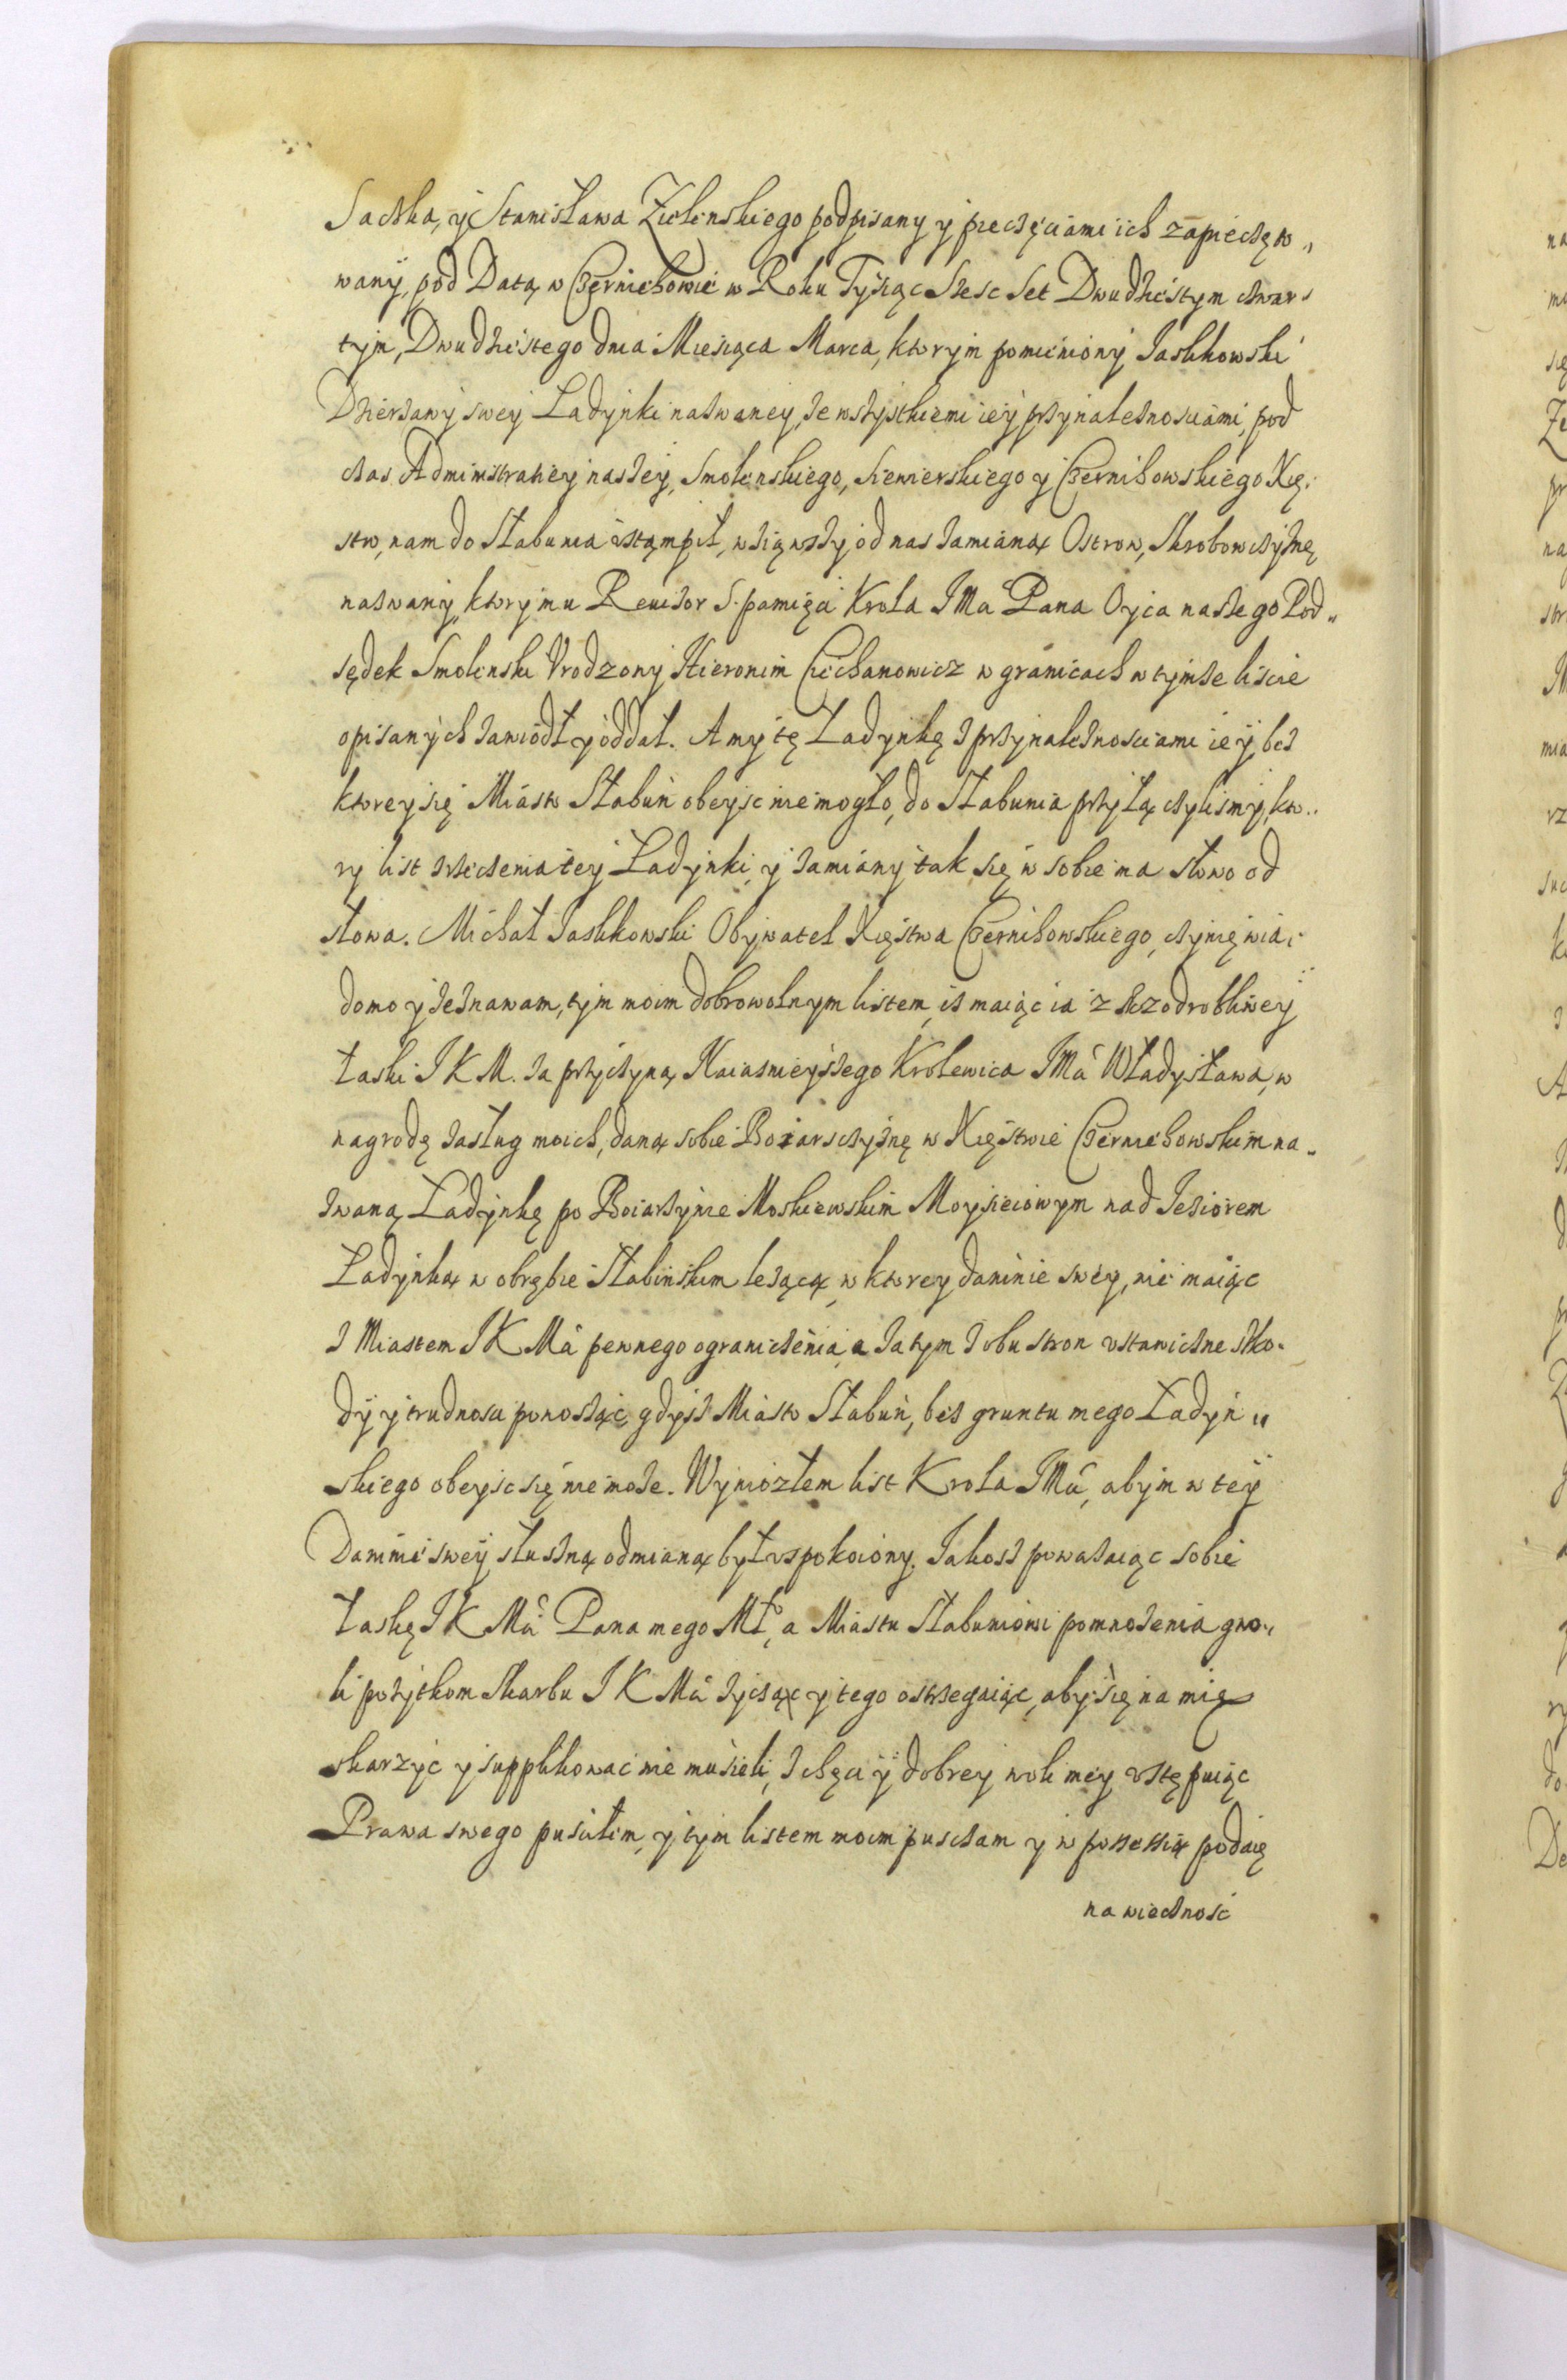 Saczka, y Stanisława Zielenskiego podpisany y pieczęciami ich zapieczęto„
wany, pod Datą w Czerniehowie w Roku Tysiąc Szesc Set Dwudziestym czwar„
tym, Dwudziestego dnia Miesiąca Marca, ktorym pomieniony Jaszkowski
Dzierzawy swey Ładynki nazwaney, ze wszystkiemi iey przynależnosciami, pod
czas Administratiey naszey, Smolenskiego, Siewierskiego y Czernihowskiego Xię„
stw, nam do Słabunia vstąmpił, wziąwszy od nas zamianą Ostrow, Skrobowczyznę
nazwany, ktory mu Reuizor S. pamięci Krola JMci Pana Oyca naszego Pod„
sędek Smolenski Vrodzony Hieronim Ciechanowicz w granicach w tymze liscie
opisanych zawiodł y oddał. A my tę Ładynkę z przynależnosciami iey bez
ktorey się Miasto Słabuń obeysc nie mogło, do Słabunia przyłączylismy, kto„
ry list zrzeczenia tey Ładynki y zamiany tak się w sobie ma słowo od
słowa. Michał Jaszkowski Obywatel Xięstwa Czernihowskiego, czynię wia„
domo y zeznawam, tym moim dobrowolnym listem, iż maiąc ia z szczodrobliwey
łaski J K M. za przyczyną Naiasnieyszego Krolewica JMci Władysława, w
nagrodę zasług moich, daną sobie Boiarsczyznę w Xięstwie Czerniehowskim na„
zwaną Ładynkę po Boiarzynie Moskiewskim Moysieiowym nad Jeziorem
Ładynką w obrębie Słabińskim leżącą, w ktorey daninie swey, nie maiąc
z Miastem J K Mci pewnego ograniczenia, a zatym z obu stron vstawiczne szko„
dy y trudnosci ponosząc, gdysz Miasto Słabuń, bez gruntu mego Ładyń„
skiego obeysc się nie może. Wyniozłem list Krola JMci, abym w tey
Daninie swey słuszną odmianą był vspokoiony. Jakosz poważaiąc sobie
łaskę J K Mci Pana mego Młº, a Miastu Słabuniowi pomnożenia gwo„
li pożytkom Skarbu J K Mci życząc y tego ostrzegaiąc, aby się na mię
skarzyc y supplikowac nie musieli, z chęci y dobrey woli mey vstępuiąc
Prawa swego puscilem, y tym listem moim pusczam y w possessią podaię
na wieczność